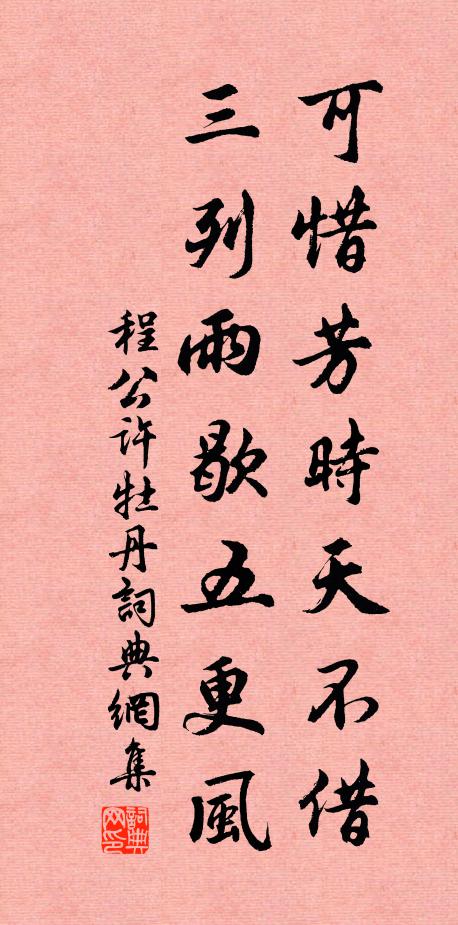 可惜芳時天不借
三列雨歇五更風
程公许牡丹詞典網集
詞典网印